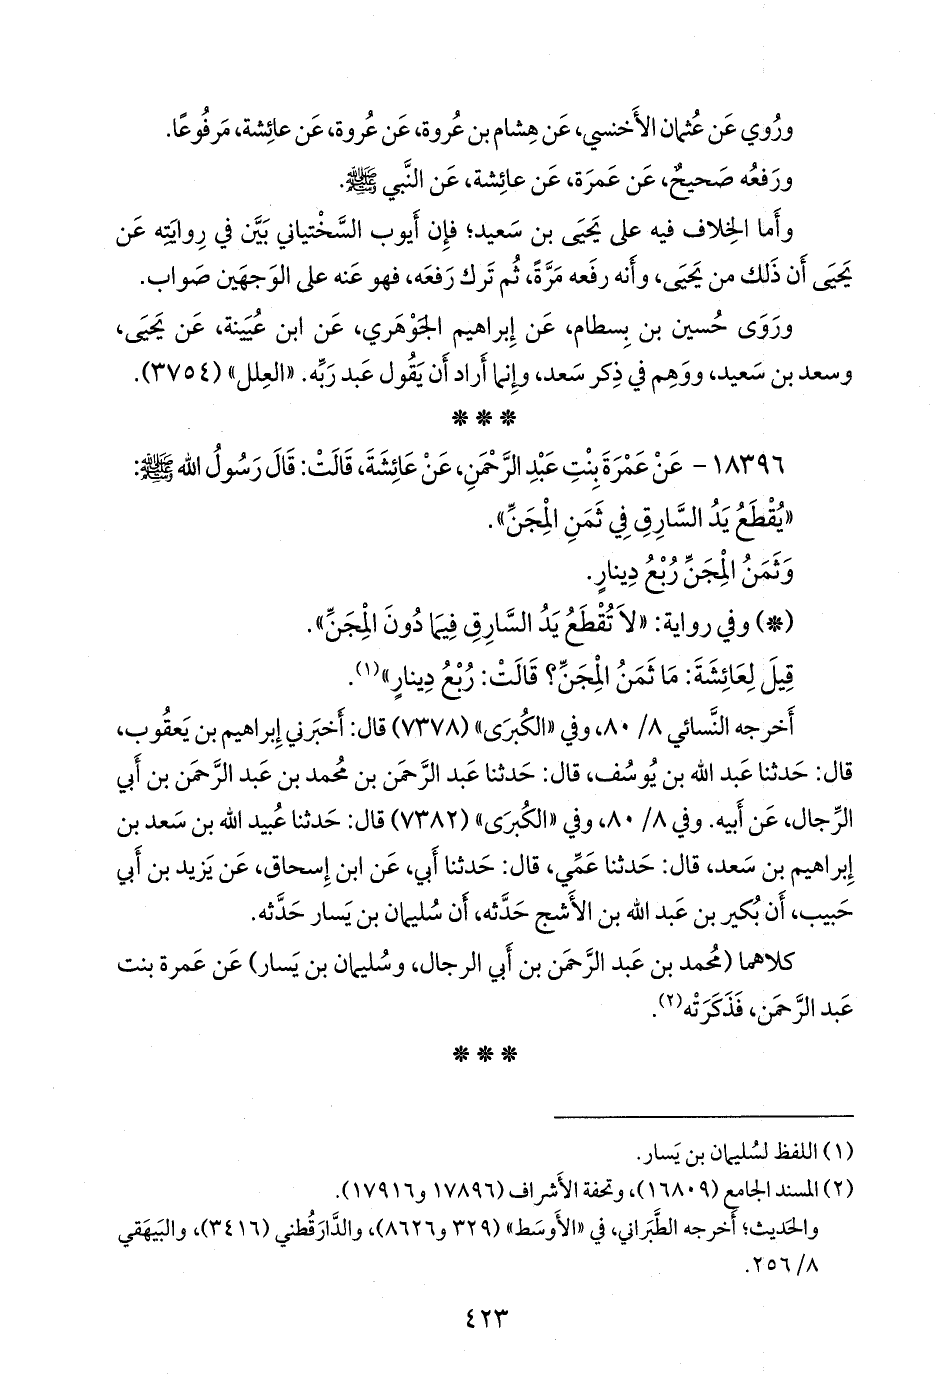 ورُوي عَن عُثمان الأَخنسي، عَن هِشام بن عُروة، عَن عُروة، عَن عائِشة، مَرفُوعًا.
ورَفعُه صَحيحٌ، عَن عَمرَة، عَن عائِشة، عَن النَّبي ﷺ.
وأَما الخِلاف فيه على يَحيَى بن سَعيد؛ فإِن أَيوب السَّخْتياني بَيَّن في رِوايَتِه عَن
يَحيَى أَن ذَلك من يَحيَى، وأَنه رفَعه مَرَّةً، ثُم تَرك رَفعَه، فهو عَنه على الوَجهَين صَواب.
ورَوَى حُسين بن بِسطام، عَن إِبراهيم الجَوْهَري، عَن ابن عُيَينة، عَن يَحيَى،
وسعد بن سَعيد، ووَهِم في ذِكر سَعد، وإِنما أَراد أَن يَقُول عَبد رَبِّه. «العِلل» (٣٧٥٤).
***
١٨٣٩٦ - عَنْ عَمْرَةَ بِنْتِ عَبْدِ الرَّحْمَنِ، عَنْ عَائِشَةَ، قَالَتْ: قَالَ رَسُولُ الله ﷺ:
«يُقْطَعُ يَدُ السَّارِقِ فِي ثَمَنِ الْمِجَنِّ».
وَثَمَنُ الْمِجَنِّ رُبْعُ دِينارٍ.
(*) وفي رواية: «لاَ تُقْطَعُ يَدُ السَّارِقِ فِيمَا دُونَ الْمِجَنِّ».
قِيلَ لِعَائِشَةَ: مَا ثَمَنُ الْمِجَنِّ؟ قَالَتْ: رُبْعُ دِينارٍ»(١).
أَخرجه النَّسائي ٨/ ٨٠، وفي «الكُبرَى» (٧٣٧٨) قال: أَخبَرني إِبراهيم بن يَعقُوب،
قال: حَدثنا عَبد الله بن يُوسُف، قال: حَدثنا عَبد الرَّحمَن بن مُحمد بن عَبد الرَّحمَن بن أَبي
الرِّجال، عَن أَبيه. وفي ٨/ ٨٠، وفي «الكُبرَى» (٧٣٨٢) قال: حَدثنا عُبيد الله بن سَعد بن
إِبراهيم بن سَعد، قال: حَدثنا عَمِّي، قال: حَدثنا أَبي، عَن ابن إِسحاق، عَن يَزيد بن أَبي
حَبيب، أَن بُكير بن عَبد الله بن الأَشج حَدَّثه، أَن سُليمان بن يَسار حَدَّثه.
كلاهما (مُحمد بن عَبد الرَّحمَن بن أَبي الرجال، وسُليمان بن يَسار) عَن عَمرة بنت
عَبد الرَّحمَن، فَذَكَرَتْه(٢).
***
(١) اللفظ لسُليمان بن يَسار.
(٢) المسند الجامع (١٦٨٠٩)، وتحفة الأَشراف (١٧٨٩٦ و١٧٩١٦).
والحَديث؛ أَخرجه الطَّبَراني، في «الأَوسَط» (٣٢٩ و٨٦٢٦)، والدَّارَقُطني (٣٤١٦)، والبَيهَقي
٨/ ٢٥٦.
٤٢٣